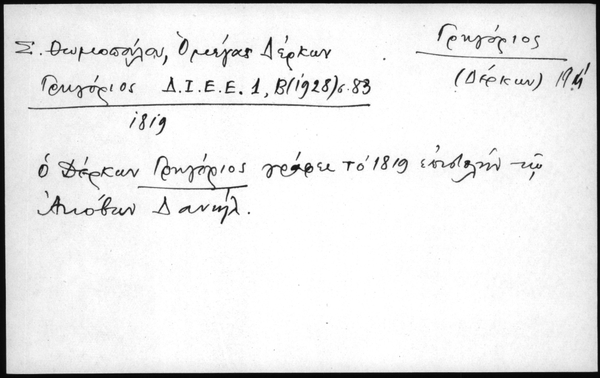 Γρηγόριος
(Δέρκων) 19
Σ. Θωμοπούλου, Ὁ μέγας Δέρκων
Γρηγόριος Δ.Ι.Ε.Ε. 1, Β(1928)σ. 83
1819
ὁ Δέρκων Γρηγόριος γράφει τὸ 1819 ἐπιστολὴν τῷ
Δανιήλ.